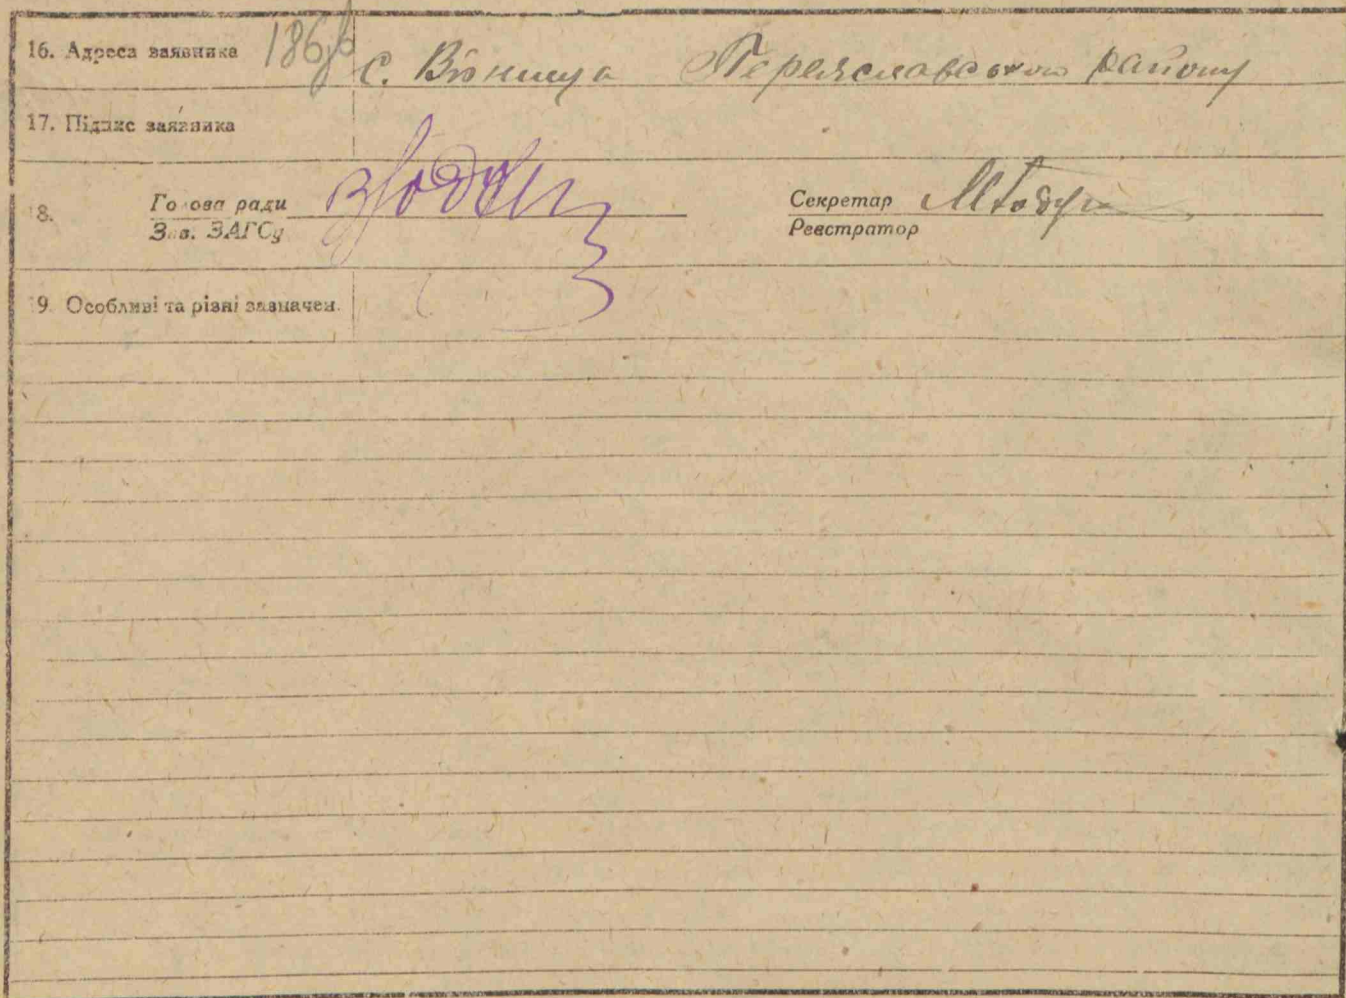 16. Адреса заявника с. Вінниця Переяславського району
17. Підпис заявника
18. Голова ради Секретар
Зав. ЗАГСу Реєстратор
19. Особливі та різні зазначен.